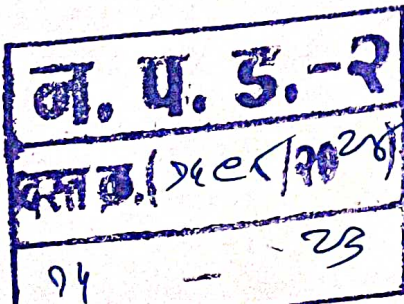 न. प. ड.-२
दस्त क्र.( १५९८/२०२४)
१५ — २३